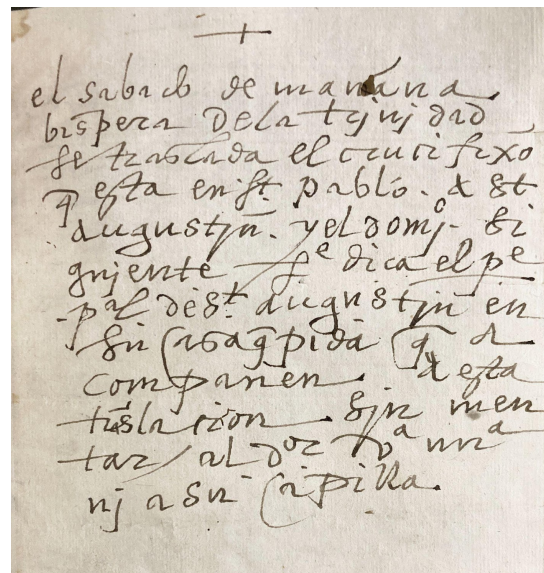 el sabado de mañana
bispera Dela trinjdad
se traslada el crucifixo
q̃ esta en st. pablo. a st
augustjn̄. y el domjº. si
gujente sᵉ dica el pᵉ
pāl de sᵗ. augustjn en
su casa q̃ pida q̃ a
compañen a esta
trāslacion sjn men
tar al doᵒʳ
nj a su capilla.